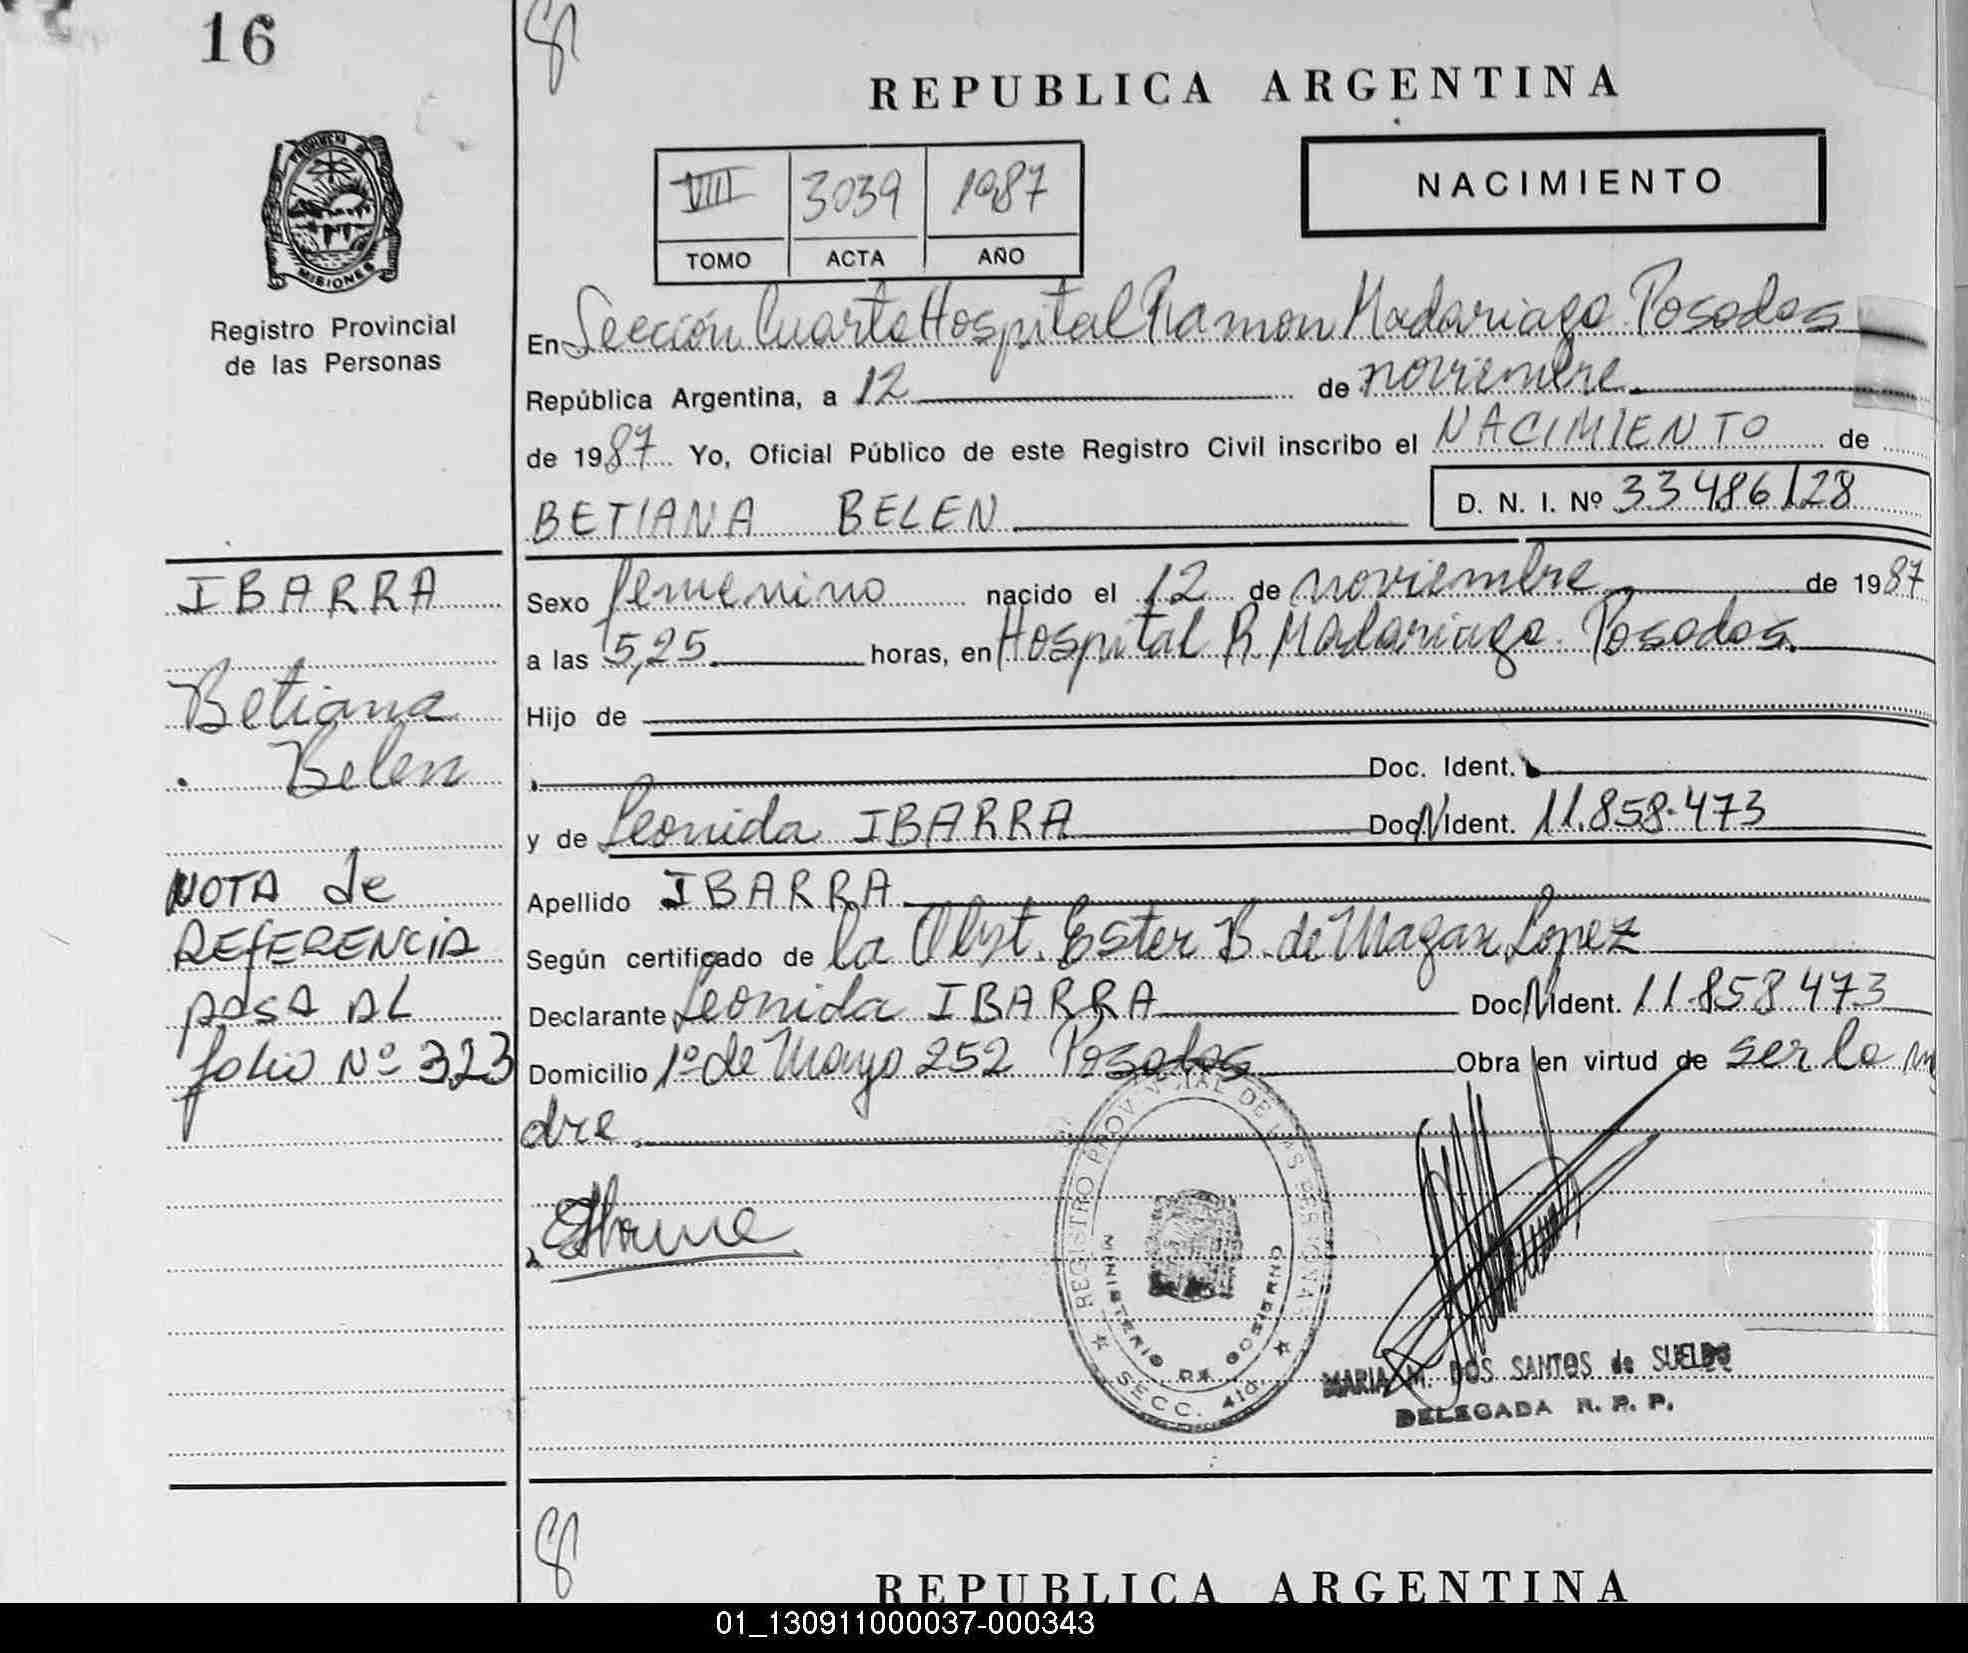 16
REPUBLICA ARGENTINA
NACIMIENTO
VIII 3039 1987
TOMO ACTA AÑO
PROVINCIA DE
MISIONES
Registro Provincial
de las Personas
En Sección Cuarta Hospital Ramon Madariaga Posadas
República Argentina, a 12 de noviembre
de 1987 Yo, Oficial Público de este Registro Civil inscribo el NACIMIENTO de
BETIANA BELEN D. N. I. Nº 33486128
IBARRA
Betiana
Belen
NOTA de
REFERENCIA
PASA AL
folio Nº 323
Sexo femenino nacido el 12 de noviembre de 1987
a las 5,25 horas, en Hospital R. Madariaga. Posadas.
Hijo de
Doc. Ident.
y de Leonida IBARRA Doc. N Ident. 11.858.473
Apellido IBARRA
Según certificado de la Obst. Ester B. de Lopez
Declarante Leonida IBARRA Doc. N Ident. 11.858.473
Domicilio 1º de Mayo 252 Posadas Obra en virtud de ser la ma
dre.
REGISTRO PROVINCIAL DE LAS PERSONAS
MINISTERIO DE GOBIERNO
SECC. 4ta
MARIA M. DOS SANTOS de SUELDO
DELEGADA R. P. P.
REPUBLICA ARGENTINA
01_130911000037-000343